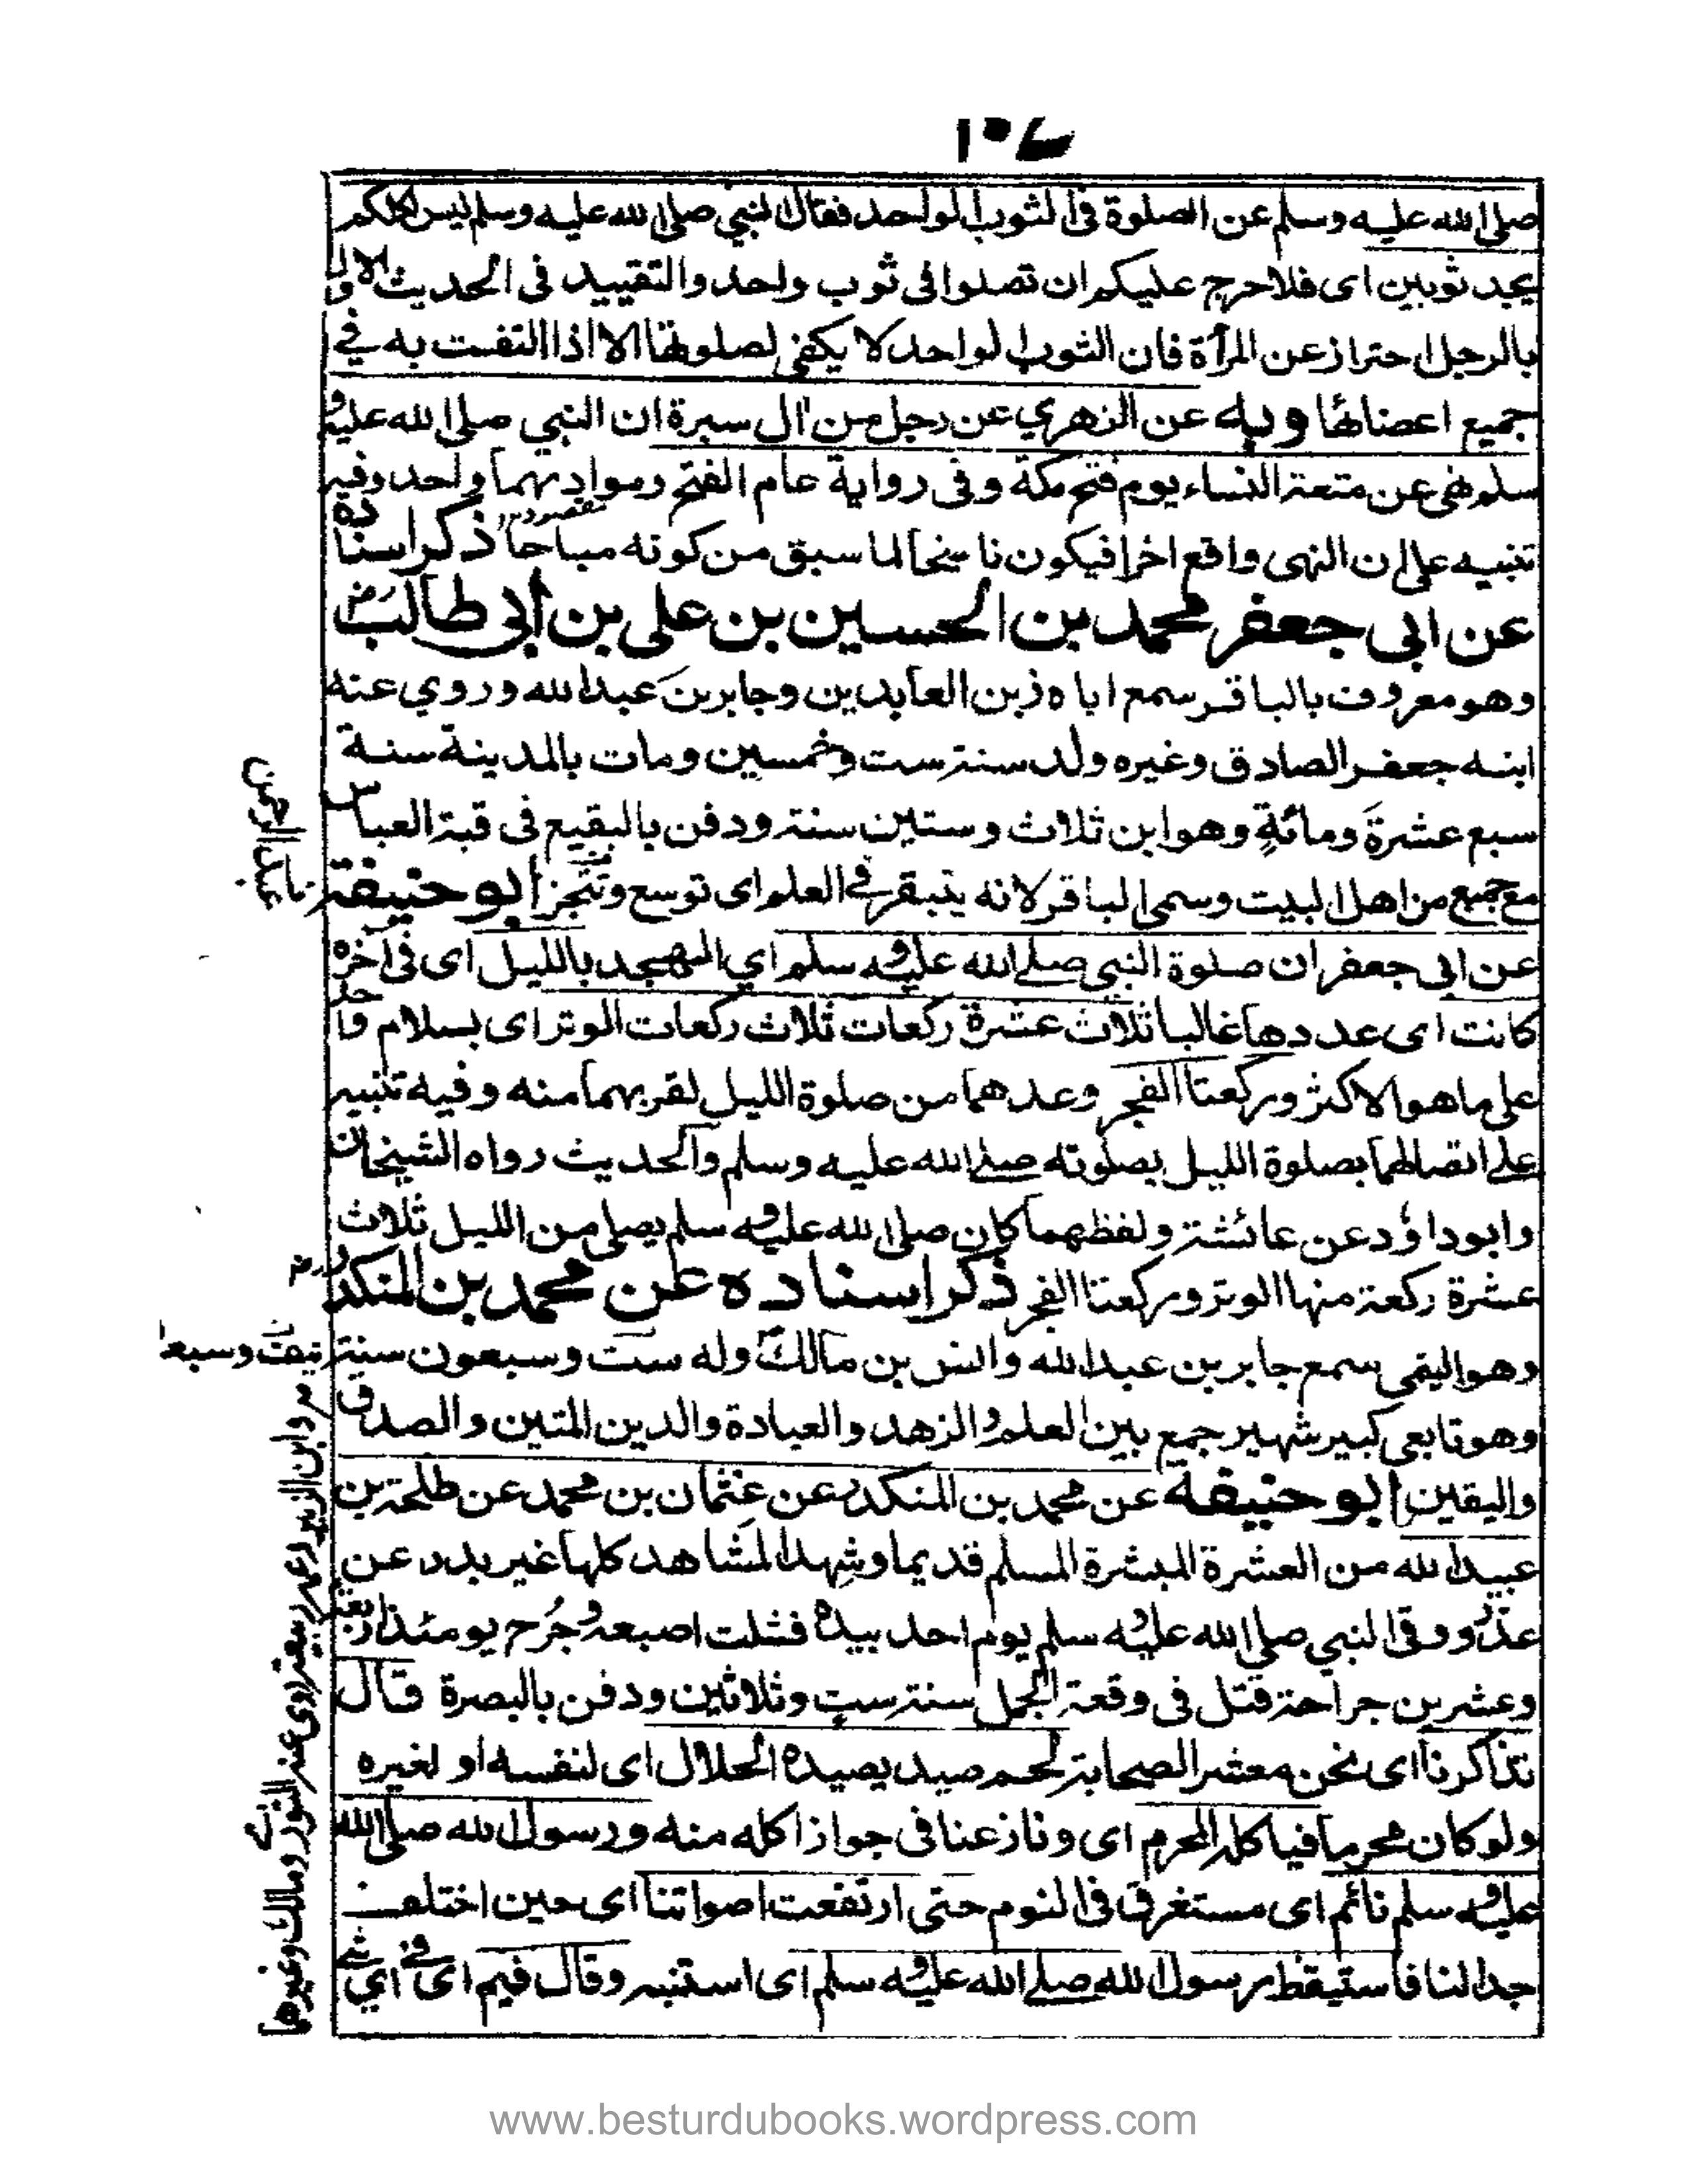 ١٠٦
صلى الله عليه وسلم عن الصلوة فى الثوب الواحد فقال النبي صلى الله عليه وسلم ليس كلكم
يجد ثوبين اى فلا حرج عليكم ان تصلوا فى ثوب واحد والتقييد فى الحديث الاول
بالرجل احتراز عن المرأة فان الثوب الواحد لا يكفي لصلوتها الا اذا التفت به في
جميع اعضائها وبه عن الزهري عن رجل من آل سبرة ان النبي صلى الله عليه و
سلم نهى عن متعة النساء يوم فتح مكة وفى رواية عام الفتح ومواد بهما واحد وفيه
تنبيه على ان النهى واقع اخرا فيكون ناسخا لما سبق من كونه مباحا ذكر اسناده
عن ابى جعفر محمد بن الحسين بن على بن أبى طالب رض
وهو معروف بالباقر سمع اباه زين العابدين وجابر بن عبد الله وروي عنه
ابنه جعفر الصادق وغيره ولد سنة ست وخمسين ومات بالمدينة سنة
سبع عشرة ومائة وهو ابن ثلاث وستين سنة ودفن بالبقيع فى قبة العباس
مع جميع من اهل البيت وسمى الباقر لانه يتبقر في العلم اى توسع وتبحر أبو حنيفة
عن ابى جعفر ان صلوة النبى صلى الله عليه و سلم اي التهجد بالليل اى فى آخره
كانت اى عددها غالبا ثلاث عشرة ركعات ثلاث ركعات الوتر اى بسلام واحد
على ما هو الاكثر وركعتا الفجر وعدهما من صلوة الليل لقربهما منه وفيه تنبيه
على اتصالهما بصلوة الليل بصلوته صلى الله عليه وسلم والحديث رواه الشيخان
وابو داؤد عن عائشة ولفظهما كان صلى الله عليه و سلم يصلى من الليل ثلاث
عشرة ركعة منها الوتر وركعتا الفجر ذكر اسناده عن محمد بن المنكدر رض
وهو اليقمى سمع جابر بن عبد الله وانس بن مالك وله ست وسبعون سنة
وهو تابعى كبير شهير جمع بين العلم والزهد والعبادة والدين المتين والصدق
واليقين أبو حنيفة عن محمد بن المنكدر عن عثمان بن محمد عن طلحة بن
عبيد الله من العشرة المبشرة المسلم قديما وشهد المشاهد كلها غير بدر عن
عذر ووقى النبي صلى الله عليه و سلم يوم احد بيده فشلت اصبعه وجرح يومئذ اربعة
وعشرين جراحة قتل فى وقعة الجمل سنة ست وثلاثين ودفن بالبصرة قال
تذاكرنا اى نحن معشر الصحابة لحم صيد يصيده الحلال اى لنفسه او لغيره
ولو كان محرما فياكله المحرم اى وتنازعنا فى جواز اكله منه ورسول الله صلى الله
عليه و سلم نائم اى مستغرق فى النوم حتى ارتفعت اصواتنا اى حين اختلف
جدالنا فاستيقظ رسول الله صلى الله عليه و سلم اى استنبه وقال فيم اى في اي شئ
وابن الزبير
ربيعة روى عنه الثوري ومالك وغيرهما
www.besturdubooks.wordpress.com